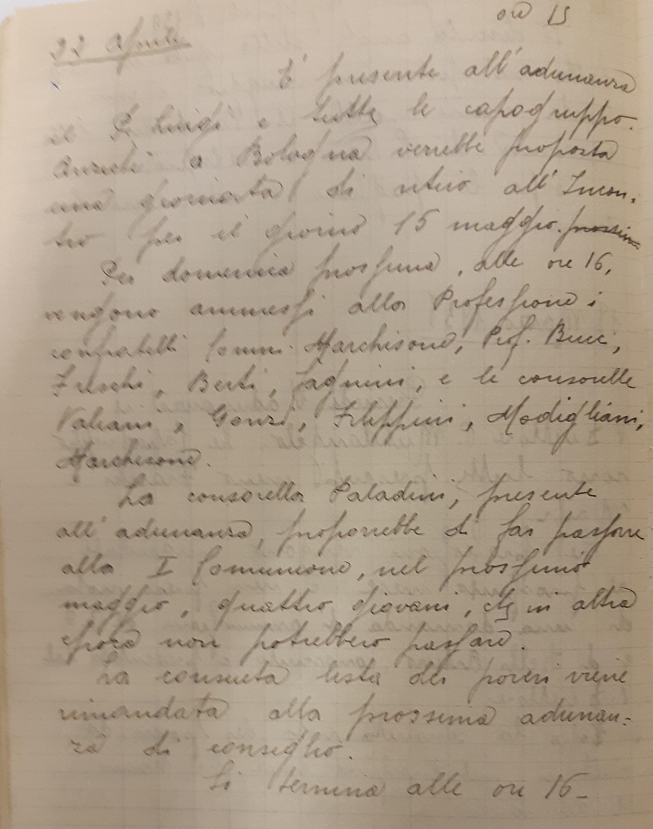 ore 15
22 Aprile
E' presente all'adunanza
il P. Luigi e tutte le capogruppo.
Anziché a Bologna verrebbe proposta
una giornata di ritiro all'Incon-
tro per il giorno 15 maggio. prossimo
Per domenica prossima, alle ore 16,
vengono ammessi alla Professione i
confratelli Comm. Marchisone, Prof. Bucci,
Freschi, Berti, Fagnini, e le consorelle
Valiani, Gonzi, Filippini, Modigliani,
Marchisone.
La consorella Paladini, presente
all'adunanza, proporrebbe di far passare
alla I Comunione, nel prossimo
maggio, quattro giovani, che in altra
epoca non potrebbero passare.
La consueta lista dei poveri viene
rimandata alla prossima adunan-
za di consiglio.
Si termina alle ore 16-